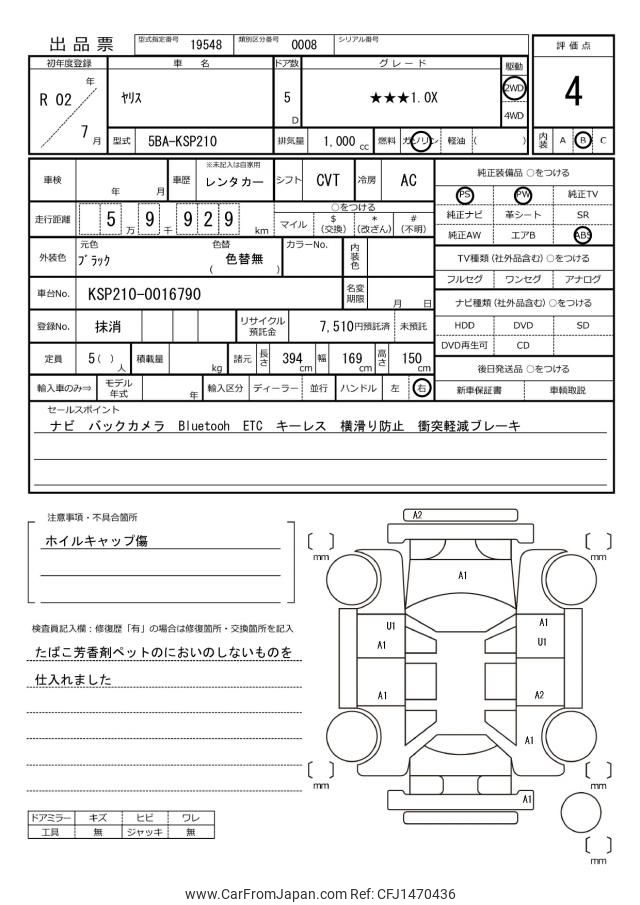 出品票 型式指定番号 19548 類別区分番号 0008 シリアル番号
評価点
4
内装 A B C
初年度登録 車名 ドア数 グレード 駆動
R 02 年 7 月 ヤリス 5 D ★★★1.0X 2WD
4WD
型式 5BA-KSP210 排気量 1,000 cc 燃料 ガソリン 軽油 ( )
車検 年 月 車歴 ※未記入は自家用 レンタカー シフト CVT 冷房 AC
走行距離 5 万 9 千 9 2 9 km
○をつける
マイル $(交換) *(改ざん) #(不明)
外装色 元色 ブラック 色替 ( 色替無 ) カラーNo. 内装色
車台No. KSP210-0016790 名変期限 月 日
登録No. 抹消 リサイクル預託金 7,510円預託済 未預託
定員 5( ) 人 積載量 kg 諸元 長さ 394 cm 幅 169 cm 高さ 150 cm
輸入車のみ⇒ モデル年式 年 輸入区分 ディーラー 並行 ハンドル 左 右
純正装備品 ○をつける
PS PW 純正TV
純正ナビ 革シート SR
純正AW エアB ABS
TV種類 (社外品含む) ○をつける
フルセグ ワンセグ アナログ
ナビ種類 (社外品含む) ○をつける
HDD DVD SD
DVD再生可 CD
後日発送品 ○をつける
新車保証書 車輌取説
セールスポイント
ナビ バックカメラ Bluetooh ETC キーレス 横滑り防止 衝突軽減ブレーキ
注意事項・不具合箇所
ホイルキャップ傷
検査員記入欄：修復歴「有」の場合は修復箇所・交換箇所を記入
たばこ芳香剤ペットのにおいのしないものを
仕入れました
ドアミラー キズ ヒビ ワレ
工具 無 ジャッキ 無
A2
mm mm
A1
U1 A1
A1 U1
A1 A2
A1
mm mm
A1
mm
www.CarFromJapan.com Ref: CFJ1470436